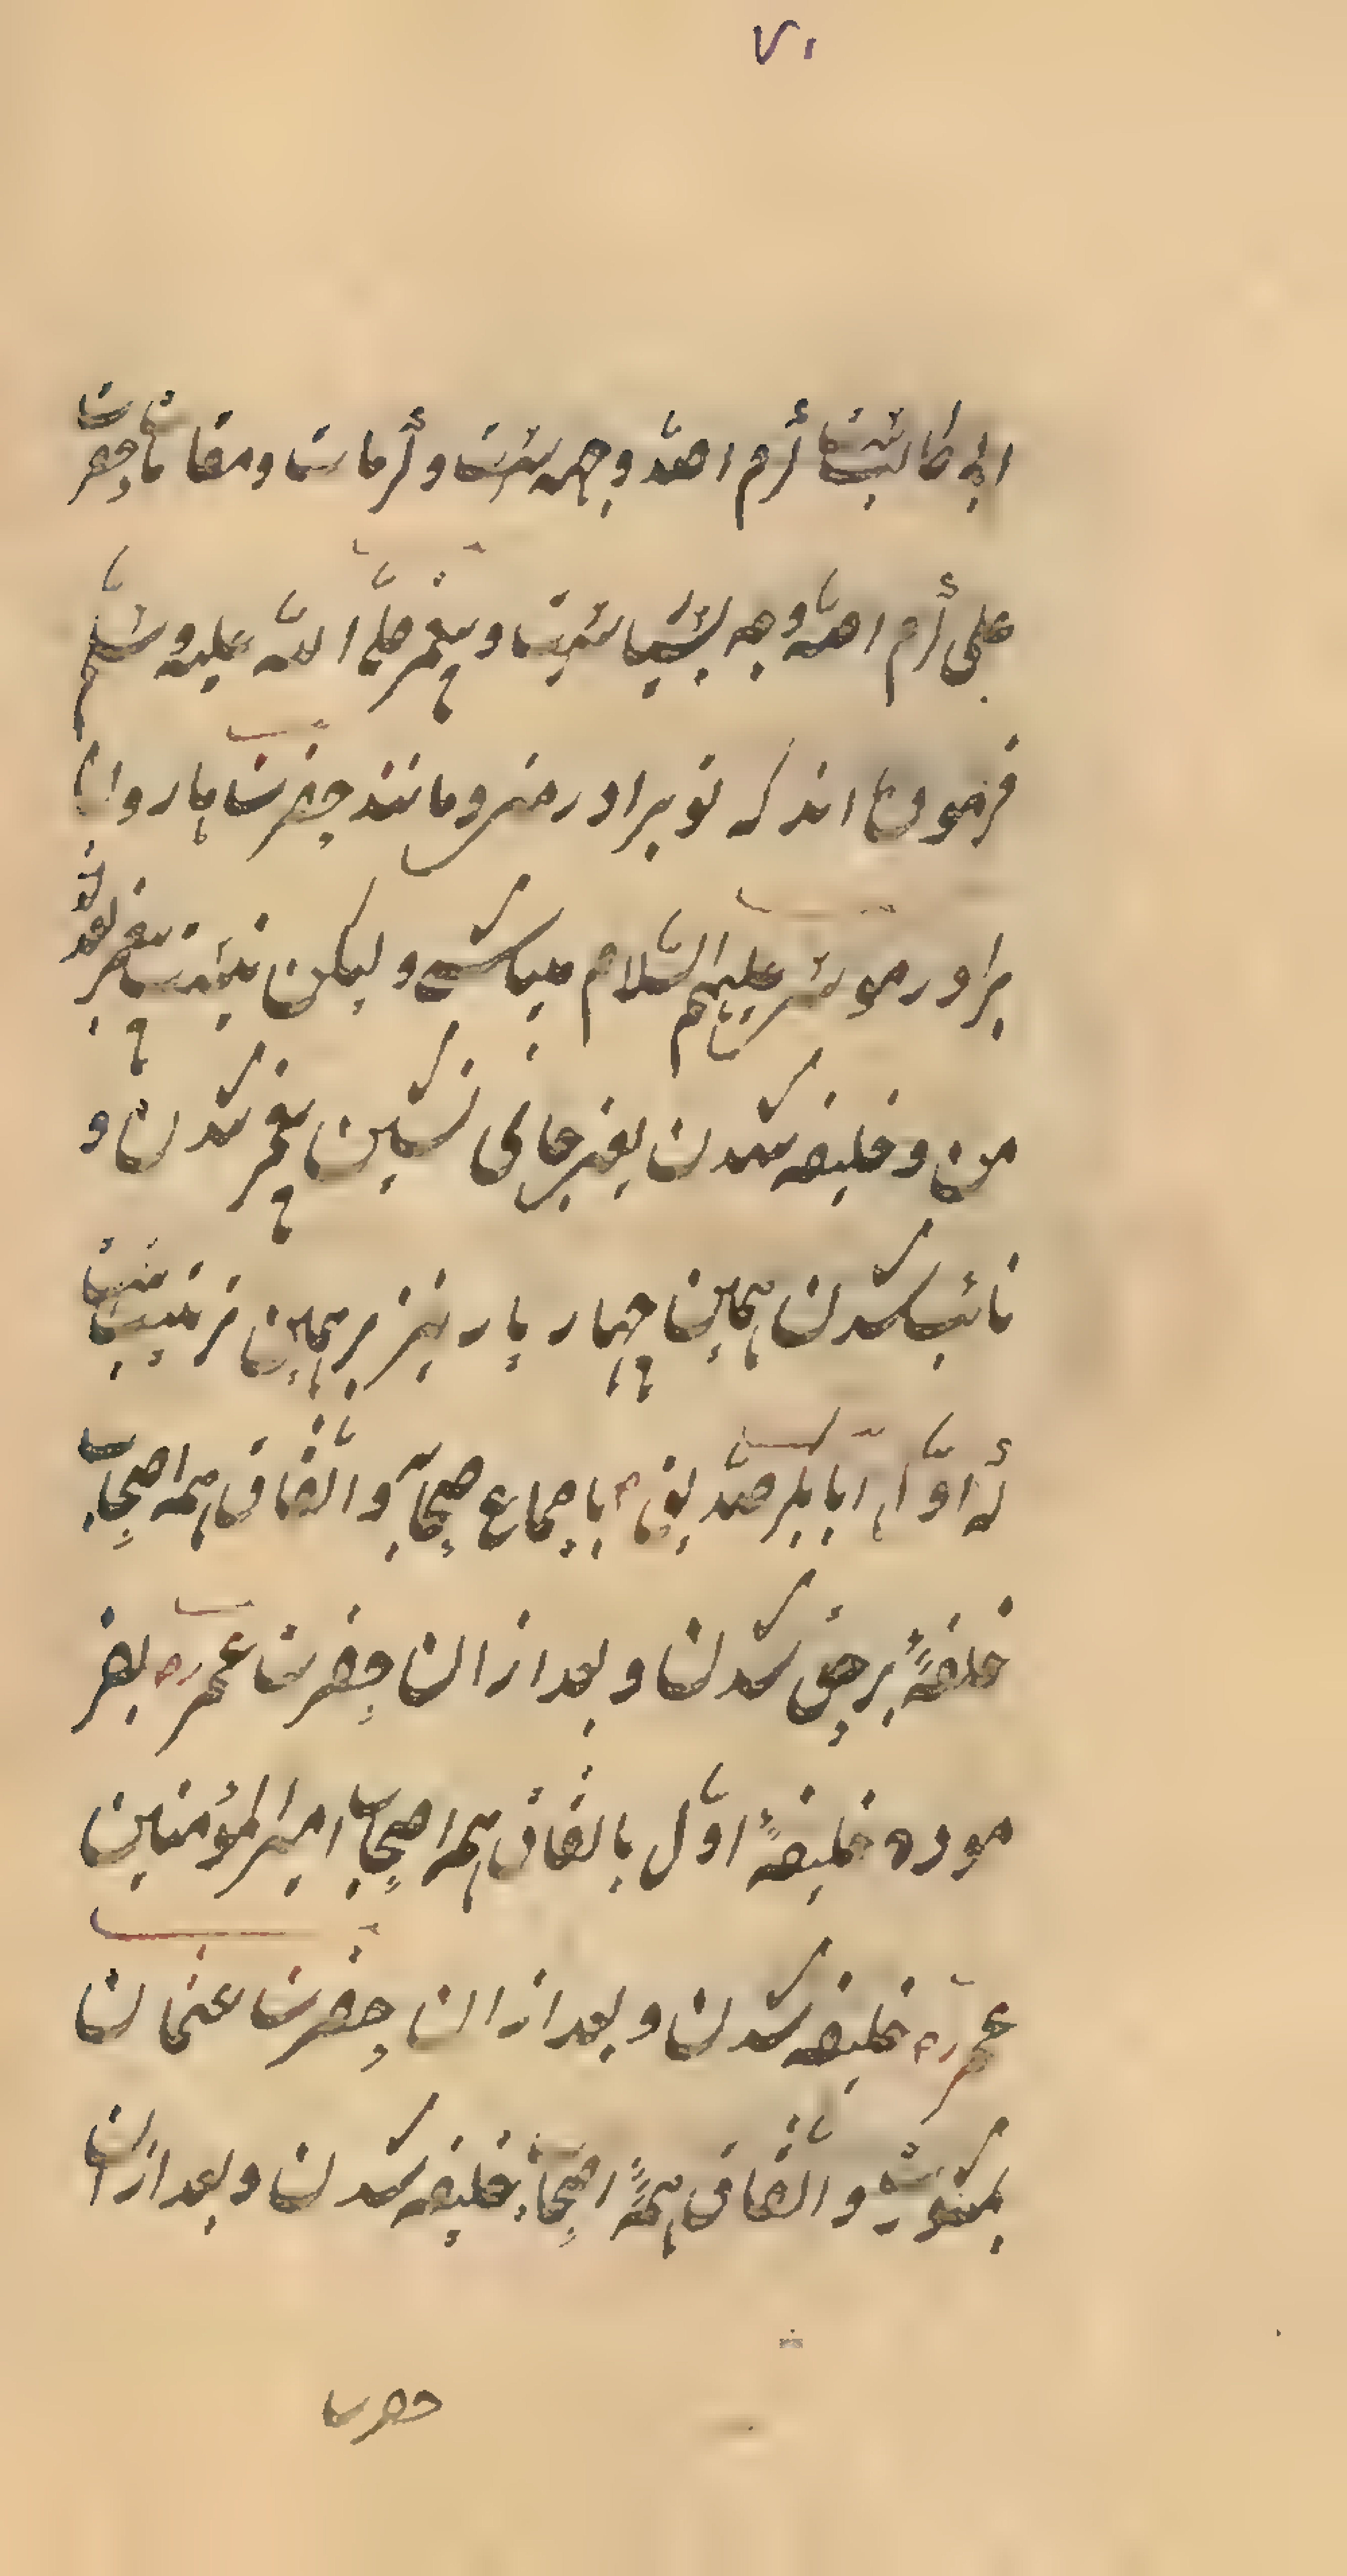 ۷۰
ابی طالب است کرم الله وجهه است و کرامات و مقامات حضرت
علی کرم الله وجهه بسیاست و پیغمبر صلی الله علیه وسلم
فرموده اند که تو برادر منی و مانند حضرت هارون
برادر موسی علیهم السلام میباشی و لیکن نیست پیغمبر بعد
من و خلیفه شدن یعنی جای نشین پیغمبر شدن و
نائب شدن همین چهار یار نیز بر همین ترتیب است
که اول ابابکر صدیق رض باجماع صحابه و اتفاق همه اصحاب
خلیفهٔ برحق شدن و بعد از ان حضرت عمر رض بفر
موده خلیفهٔ اول باتفاق همه اصحاب امیر المؤمنین
عمر رض خلیفه شدن و بعد از ان حضرت عثمان
بمشورة و اتفاق همهٔ اصحاب خلیفه شدن و بعد از ان
حضرت